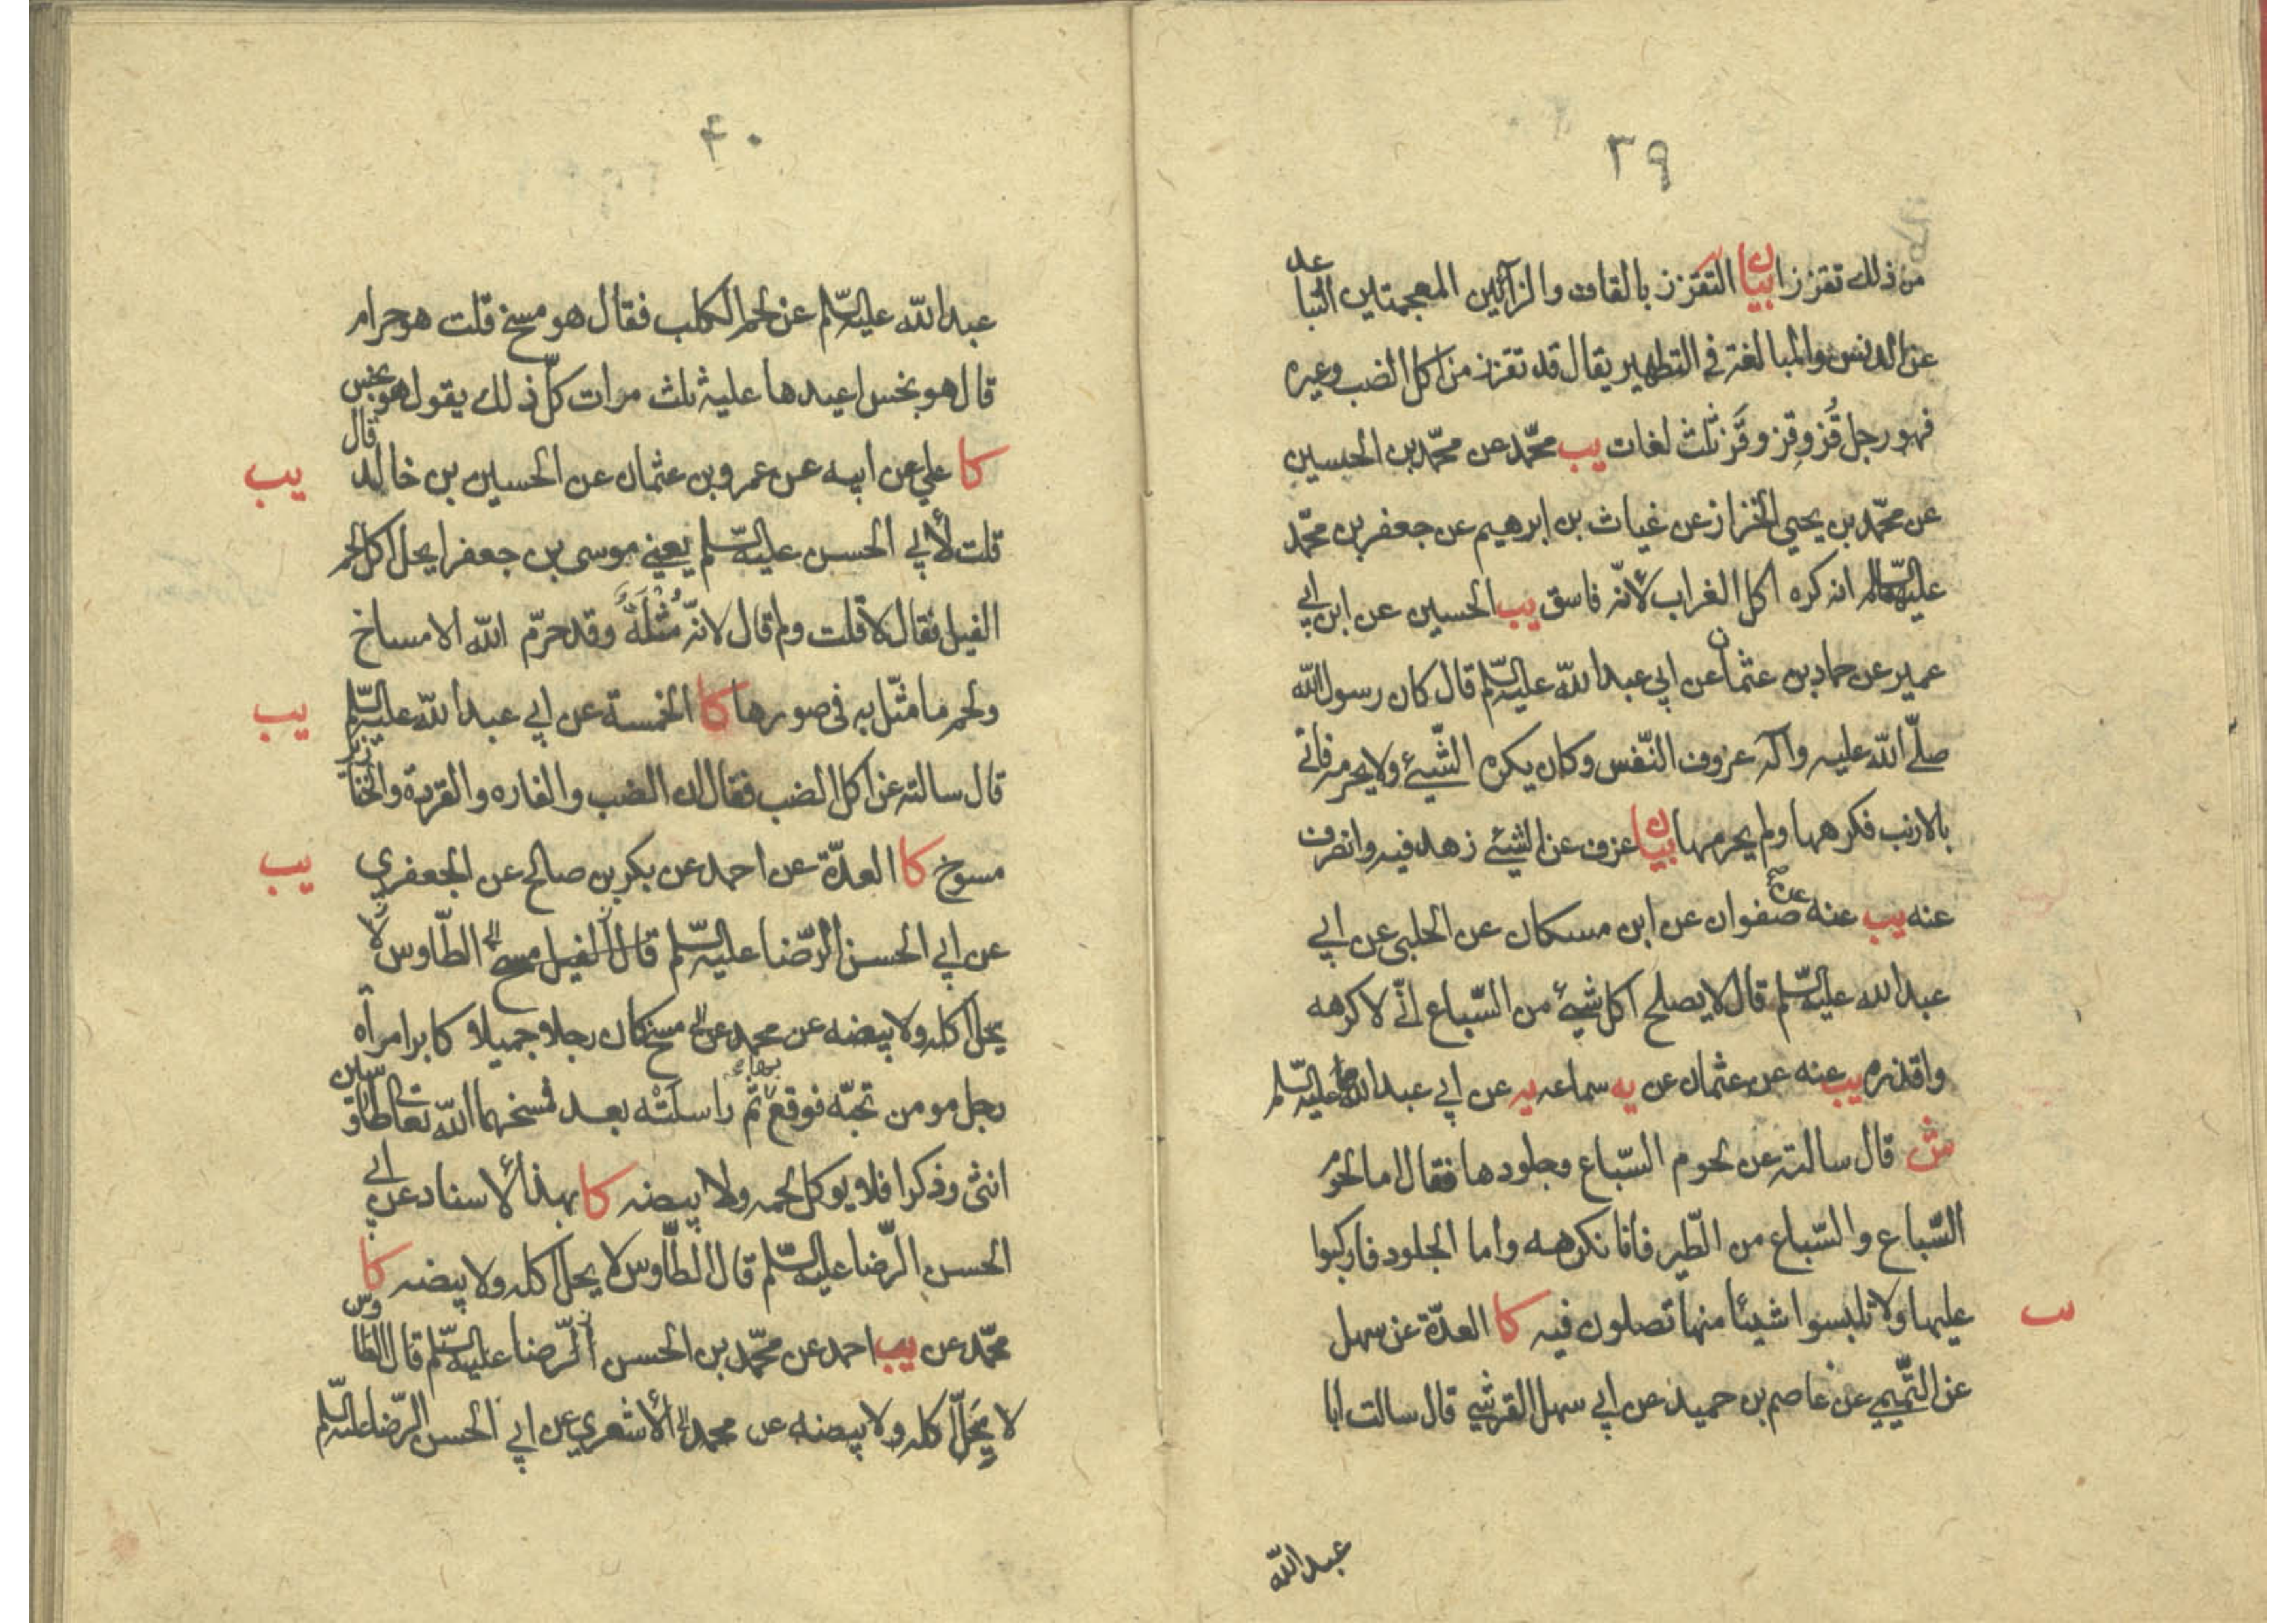 ٣٩
من ذلك تقززا بيان التقزز بالقاف والزائين المعجمتين التباعد
عن الدنس والمبالغة في التطهير يقال قد تقزز من اكل الضب وغيره
فهو رجل قُز وقِز وقَز ثلث لغات يب محمّد عن محمّد بن الحسين
عن محمّد بن يحيى الخزاز عن غياث بن ابرهيم عن جعفر بن محمّد
عليهما السّلم انه كره اكل الغراب لأنّه فاسق يب الحسين عن ابن ابي
عمير عن حماد بن عثمان عن ابي عبد الله عليه السّلم قال كان رسول الله
صلّى الله عليه وآله عزوف النّفس وكان يكره الشّيئ ولا يحرمه فاتى
بالارنب فكرهها ولم يحرمها بيان عزف عن الشيئ زهد فيه وانصرف
عنه يب عنه عن صفوان عن ابن مسكان عن الحلبي عن ابي
عبد الله عليه السّلم قال لا يصلح اكل شيئ من السّباع انّي لاكرهه
واقذره يب عنه عن عثمان عن يه سماعه يه عن ابي عبد الله عليه السّلم
ش قال سالته عن لحوم السّباع وجلودها فقال اما لحوم
السّباع والسّباع من الطّير فانا نكرهه واما الجلود فاركبوا
عليها ولا تلبسوا شيئا منها تصلون فيه كا العدّة عن سهل
يب
عن التّميمي عن عاصم بن حميد عن ابي سهل القرشي قال سالت ابا
عبد الله
٤٠
عبد الله عليه السّلم عن لحم الكلب فقال هو مسخ قلت هو حرام
قال هو نجس اعيدها عليه ثلث مرات كلّ ذلك يقول هو نجس
كا علي عن ابيه عن عمرو بن عثمان عن الحسين بن خالد قال
يب
قلت لأبي الحسن عليه السّلم يعني موسى بن جعفر ايحل اكل لحم
الفيل فقال لا قلت ولم قال لانّه مُثْلَةٌ وقد حرّم الله الامساخ
ولحم ما مثّل به في صورها كا الخمسة عن ابي عبد الله عليه السّلم
يب
قال سالته عن اكل الضب فقال ان الضب والفاره والقردة والخنازير
مسوخ كا العدّة عن احمد عن بكر بن صالح عن الجعفري
يب
عن ابي الحسن الرّضا عليه السّلم قال الفيل مسخ الطّاوس لا
يحل اكله ولا بيضه عن محمد عن مسخ كان رجلا جميلا وكابر امرأة
رجل مومن تحبّه فوقع بها ثم راسلَتْه بعد فمسخهما الله تعالى طاوسين
انثى وذكرا فلا يوكل لحمه ولا بيضه كا بهذا الأسناد عن ابي
الحسن الرّضا عليه السّلم قال الطّاوس لا يحل اكله ولا بيضه كا
محمّد عن يب احمد عن محمّد بن الحسن الرّضا عليه السّلم قال الطاوس
لا يَحِلّ اكله ولا بيضه عن محمد الأشعري عن ابي الحسن الرّضا عليه السّلم